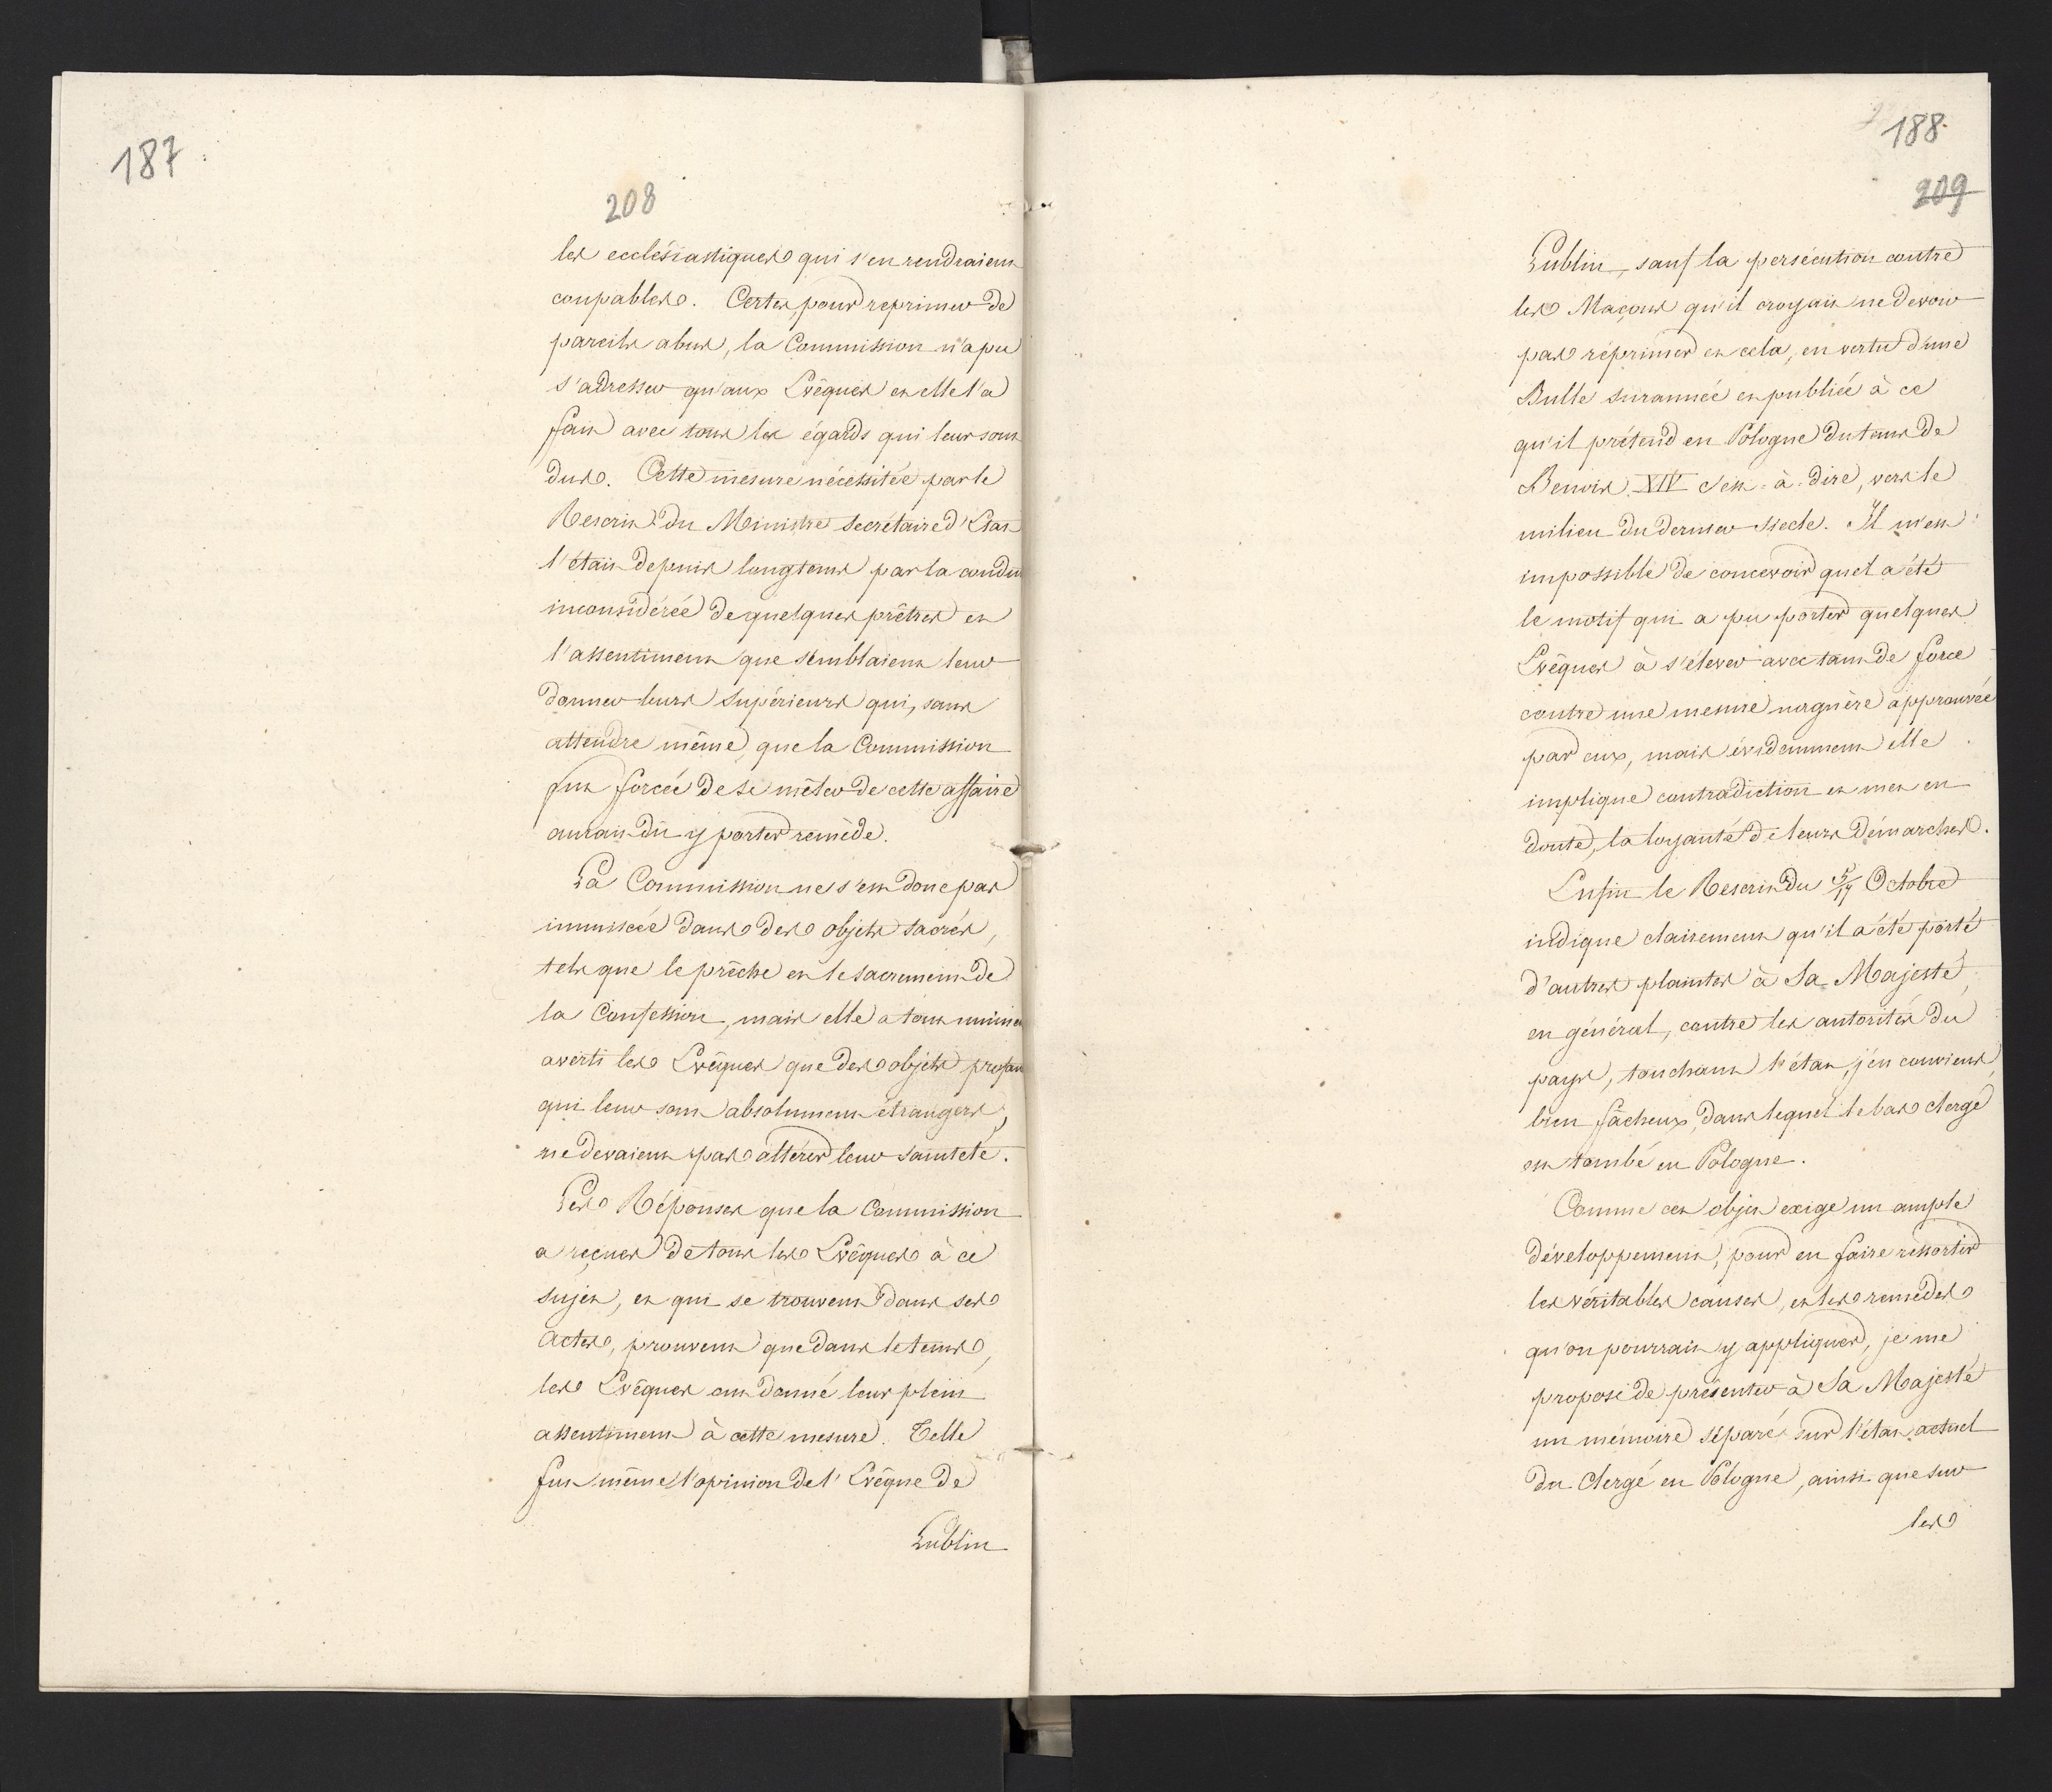 187
208
les ecclésiastiques qui s'en rendraient
coupables. Certes, pour reprimer de
pareils abus, la Commission n'a pu
s'adresser qu'aux Evêques et elle l'a
fait avec tous les égards qui leur sont
dus. Cette mesure nécessitée par le
Rescrit du Ministre Secrétaire d'Etat
l'était depuis longtems par la condu
inconsidérée de quelques prêtres et
l'assentiment que semblaient leur
donner leurs Supérieurs qui, sans
attendre même que la Commission
fut forcée de se mêler de cette affaire
aurait dû y porter remède.
La Commission ne s'est donc pas
immiscée dans des objets sacrés,
tels que le prêche et le sacrement de
la Confession, mais elle a tout
averti les Evêques que des objets profan
qui leur sont absolument étrangers,
ne devaient pas altérer leur sainteté.
Les Réponses que la Commission
a reçues de tous les Evêques à ce
sujet, et qui se trouvent dans ses
Actes, prouvent que dans le tems,
les Evêques ont donné leur plein
assentiment à cette mesure. Telle
fut même l'opinion de l'Evêque de
Lublin
188
209
Lublin, sauf la persécution contre
les Maçons qu'il croyait ne devoir
pas réprimer et cela, en vertu d'une
Bulle surannée et publiée à ce
qu'il prétend en Pologne du tems de
Benoit XIV c'est-à-dire, vers le
milieu du dernier Siecle. Il m'est
impossible de concevoir quel a été
le motif qui a pu porter quelques
Evêques à s'élever avec tant de force
contre une mesure naguère approuvée
par eux, mais évidemment elle
implique contradiction et met en
doute, la loyauté de leurs démarches.
Enfin le Rescrit du 5/17 Octobre
indique clairement qu'il a été porté
d'autres plaintes à Sa Majesté,
en général, contre les autorités du
pays, touchant l'état, j'en conviens,
bien fâcheux, dans lequel le bas clergé
est tombé en Pologne.
Comme cet objet exige un ample
développement, pour en faire ressortir
les véritables causes, et les remèdes
qu'on pourrait y appliquer, je me
propose de présenter à Sa Majesté
un mémoire séparé sur l'état actuel
du Clergé en Pologne, ainsi que sur
les